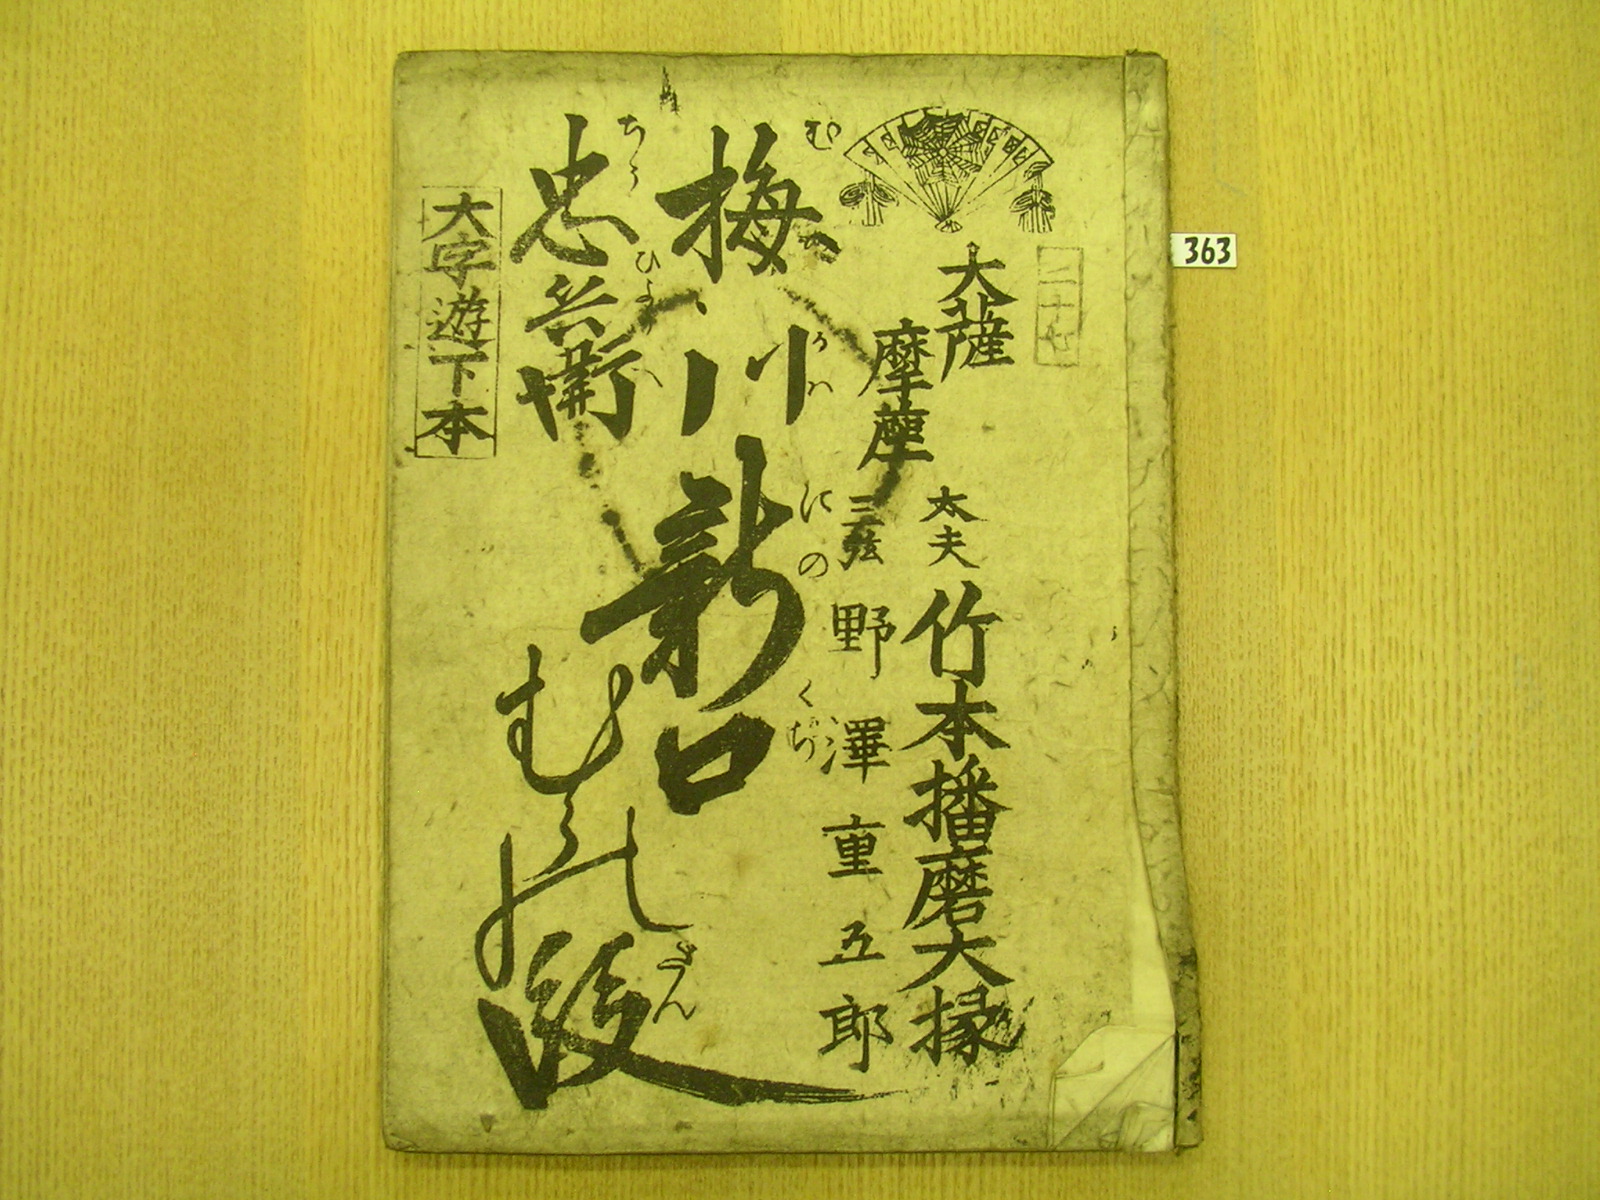 大薩
摩座
太夫 竹本播磨大掾
三弦 野澤重五郎
梅川
むめがは
忠兵衛
ちうひようへ
新口
にのくち
むらの段
だん
大字遊下本
363